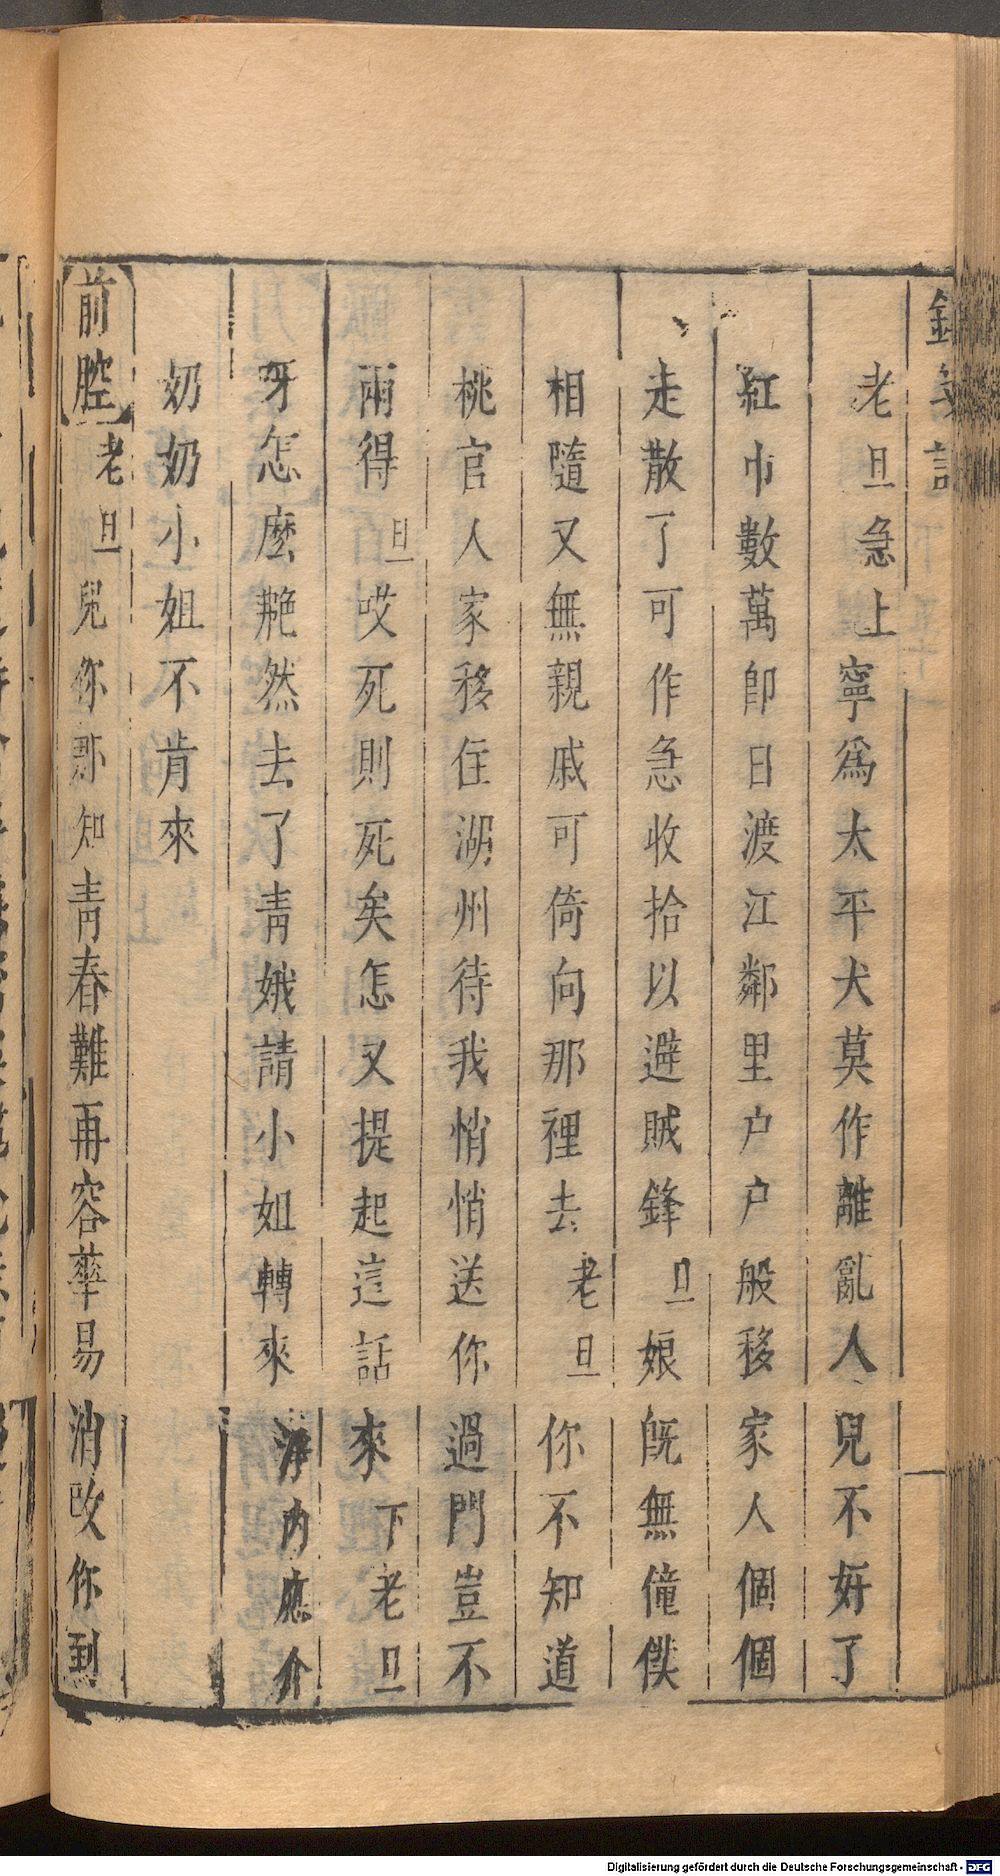 老旦急上寧爲太平犬莫作離亂人兒不好了
紅巾數萬卽日渡江鄰里户户般移家人個個
走散了可作急收拾以避賊鋒旦娘旣無僮僕
相隨又無親戚可倚向那裡去老旦你不知道
桃官人家移住湖州待我悄悄送你過門豈不
兩得旦哎死則死矣怎又提起這話來下老旦
呀怎麽艴然去了青娥請小姐轉來淨内應介
奶奶小姐不肯來
前腔老旦兒你那知青春難再容華易消改你到
Digitalisierung gefördert durch die Deutsche Forschungsgemeinschaft - DFG